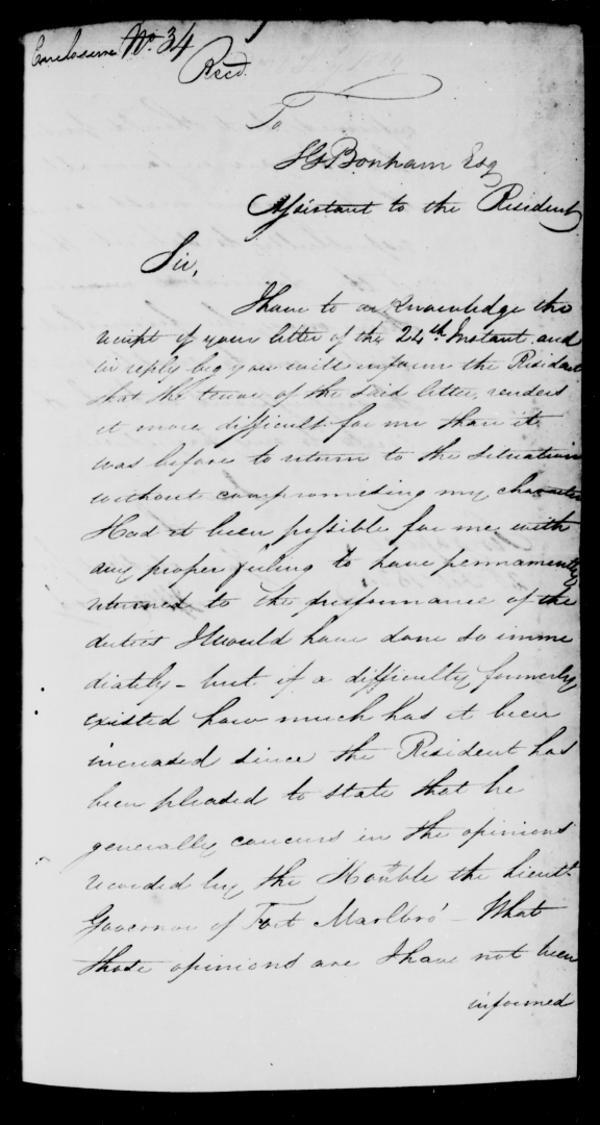 Enclosure No. 34
Recd.
To
S G Bonham Esq
Assistant to the Resident
Sir,
I have to acknowledge the
receipt of your letter of the 24th Instant and
in reply beg you will inform the Resident
that the tenor of the said letter, renders
it more difficult for me than it
was before to return to the situation
without compromising my character
Had it been possible for me with
any proper feeling to have permanently
returned to the performance of the
duties I would have done so imme
diately - but if a difficulty formerly
existed how much has it been
increased since the Resident has
been pleased to state that he
generally concurs in the opinions
recorded by the Honble the Lieutt.
Governor of Fort Marlbro' - What
those opinions are I have not been
informed